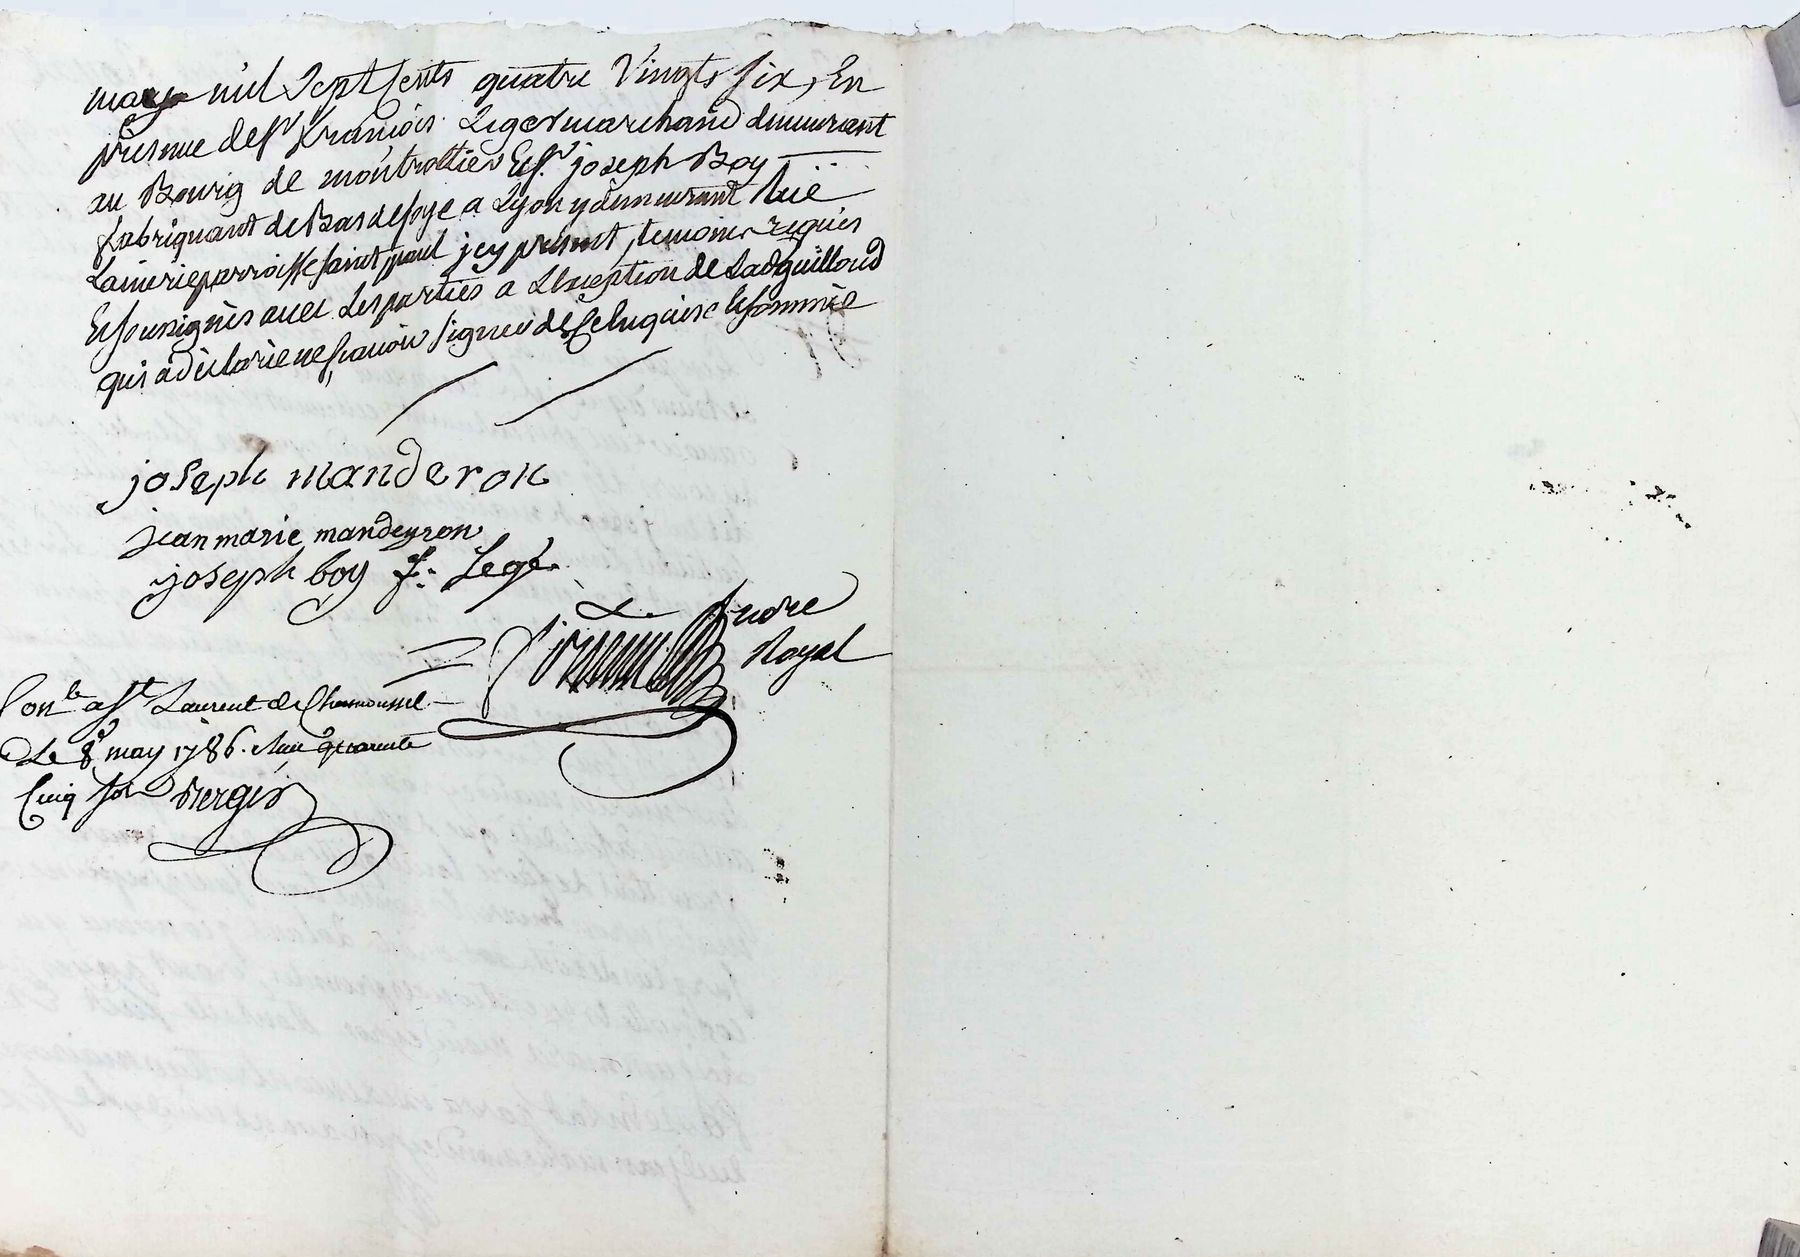 may mil Sept Cents quatre Vingts six, En
presence de sr francois Leger marchand demeurant
au Bourg de montrottier Et sr. joseph Boy
fabriquant de Bas de soye a Lyon y demeurant Rüe
Lainerie parroisse saint paul jcy present, temoins requis
Et soussignès avec Les parties a L'Exception de Lad guilloud
qui a dèclarèe ne sçavoir signer de Ce Enquise Et sommèe
joseph manderon
jean marie mandeyron
joseph boy f: Legé
andre
Royal
Conle a St Laurent de Chamousset
Le 8e may 1786. Reçu quarante
Cinq sols Vergis